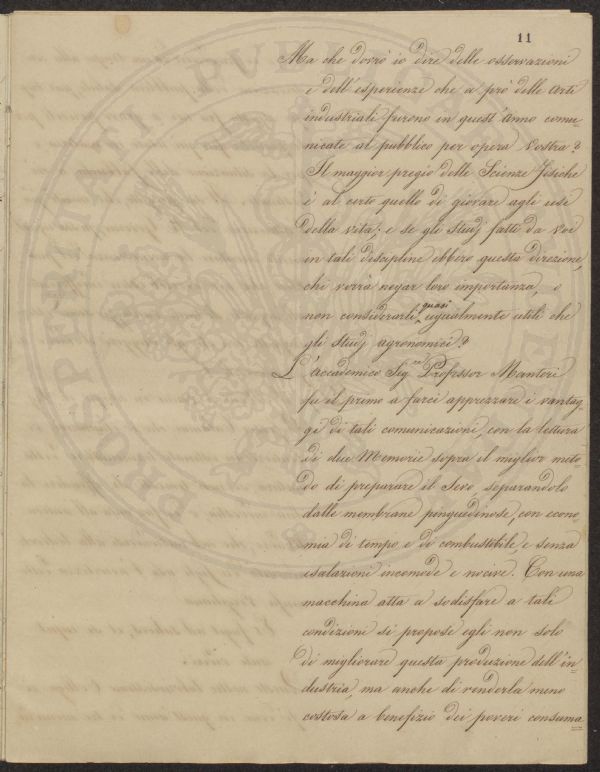 11
Ma che dovrò io dire delle osservazioni
e dell'esperienze che a prò delle Arti
industriali furono in quest'anno comu=
nicate al pubblico per opera Vostra?
Il maggior pregio delle Scienze Fisiche
è al certo quello di giovare agli usi
della vita; e se gli studj fatti da voi
in tali discipline ebbero questa direzione,
chi vorrà negar loro importanza, o
non considerarli quasi ugualmente utili che
gli studj agronomici?
L'accademico Sig.re Professor Manteri
fu il primo a farci apprezzare i vantag=
gi di tali comunicazioni, con la lettura
di due Memorie sopra il miglior meto=
do di preparare il Sevo, separandolo
dalle membrane pinguedinose, con econo=
mia di tempo e di combustibile, e senza
esalazioni incomode e nocive. Con una
macchina atta a sodisfare a tali
condizioni si propose egli non solo
di migliorare questa produzione dell'in=
dustria, ma anche di renderla meno
costosa a benefizio dei poveri consuma=
PROSPERITATI PUBLICAE